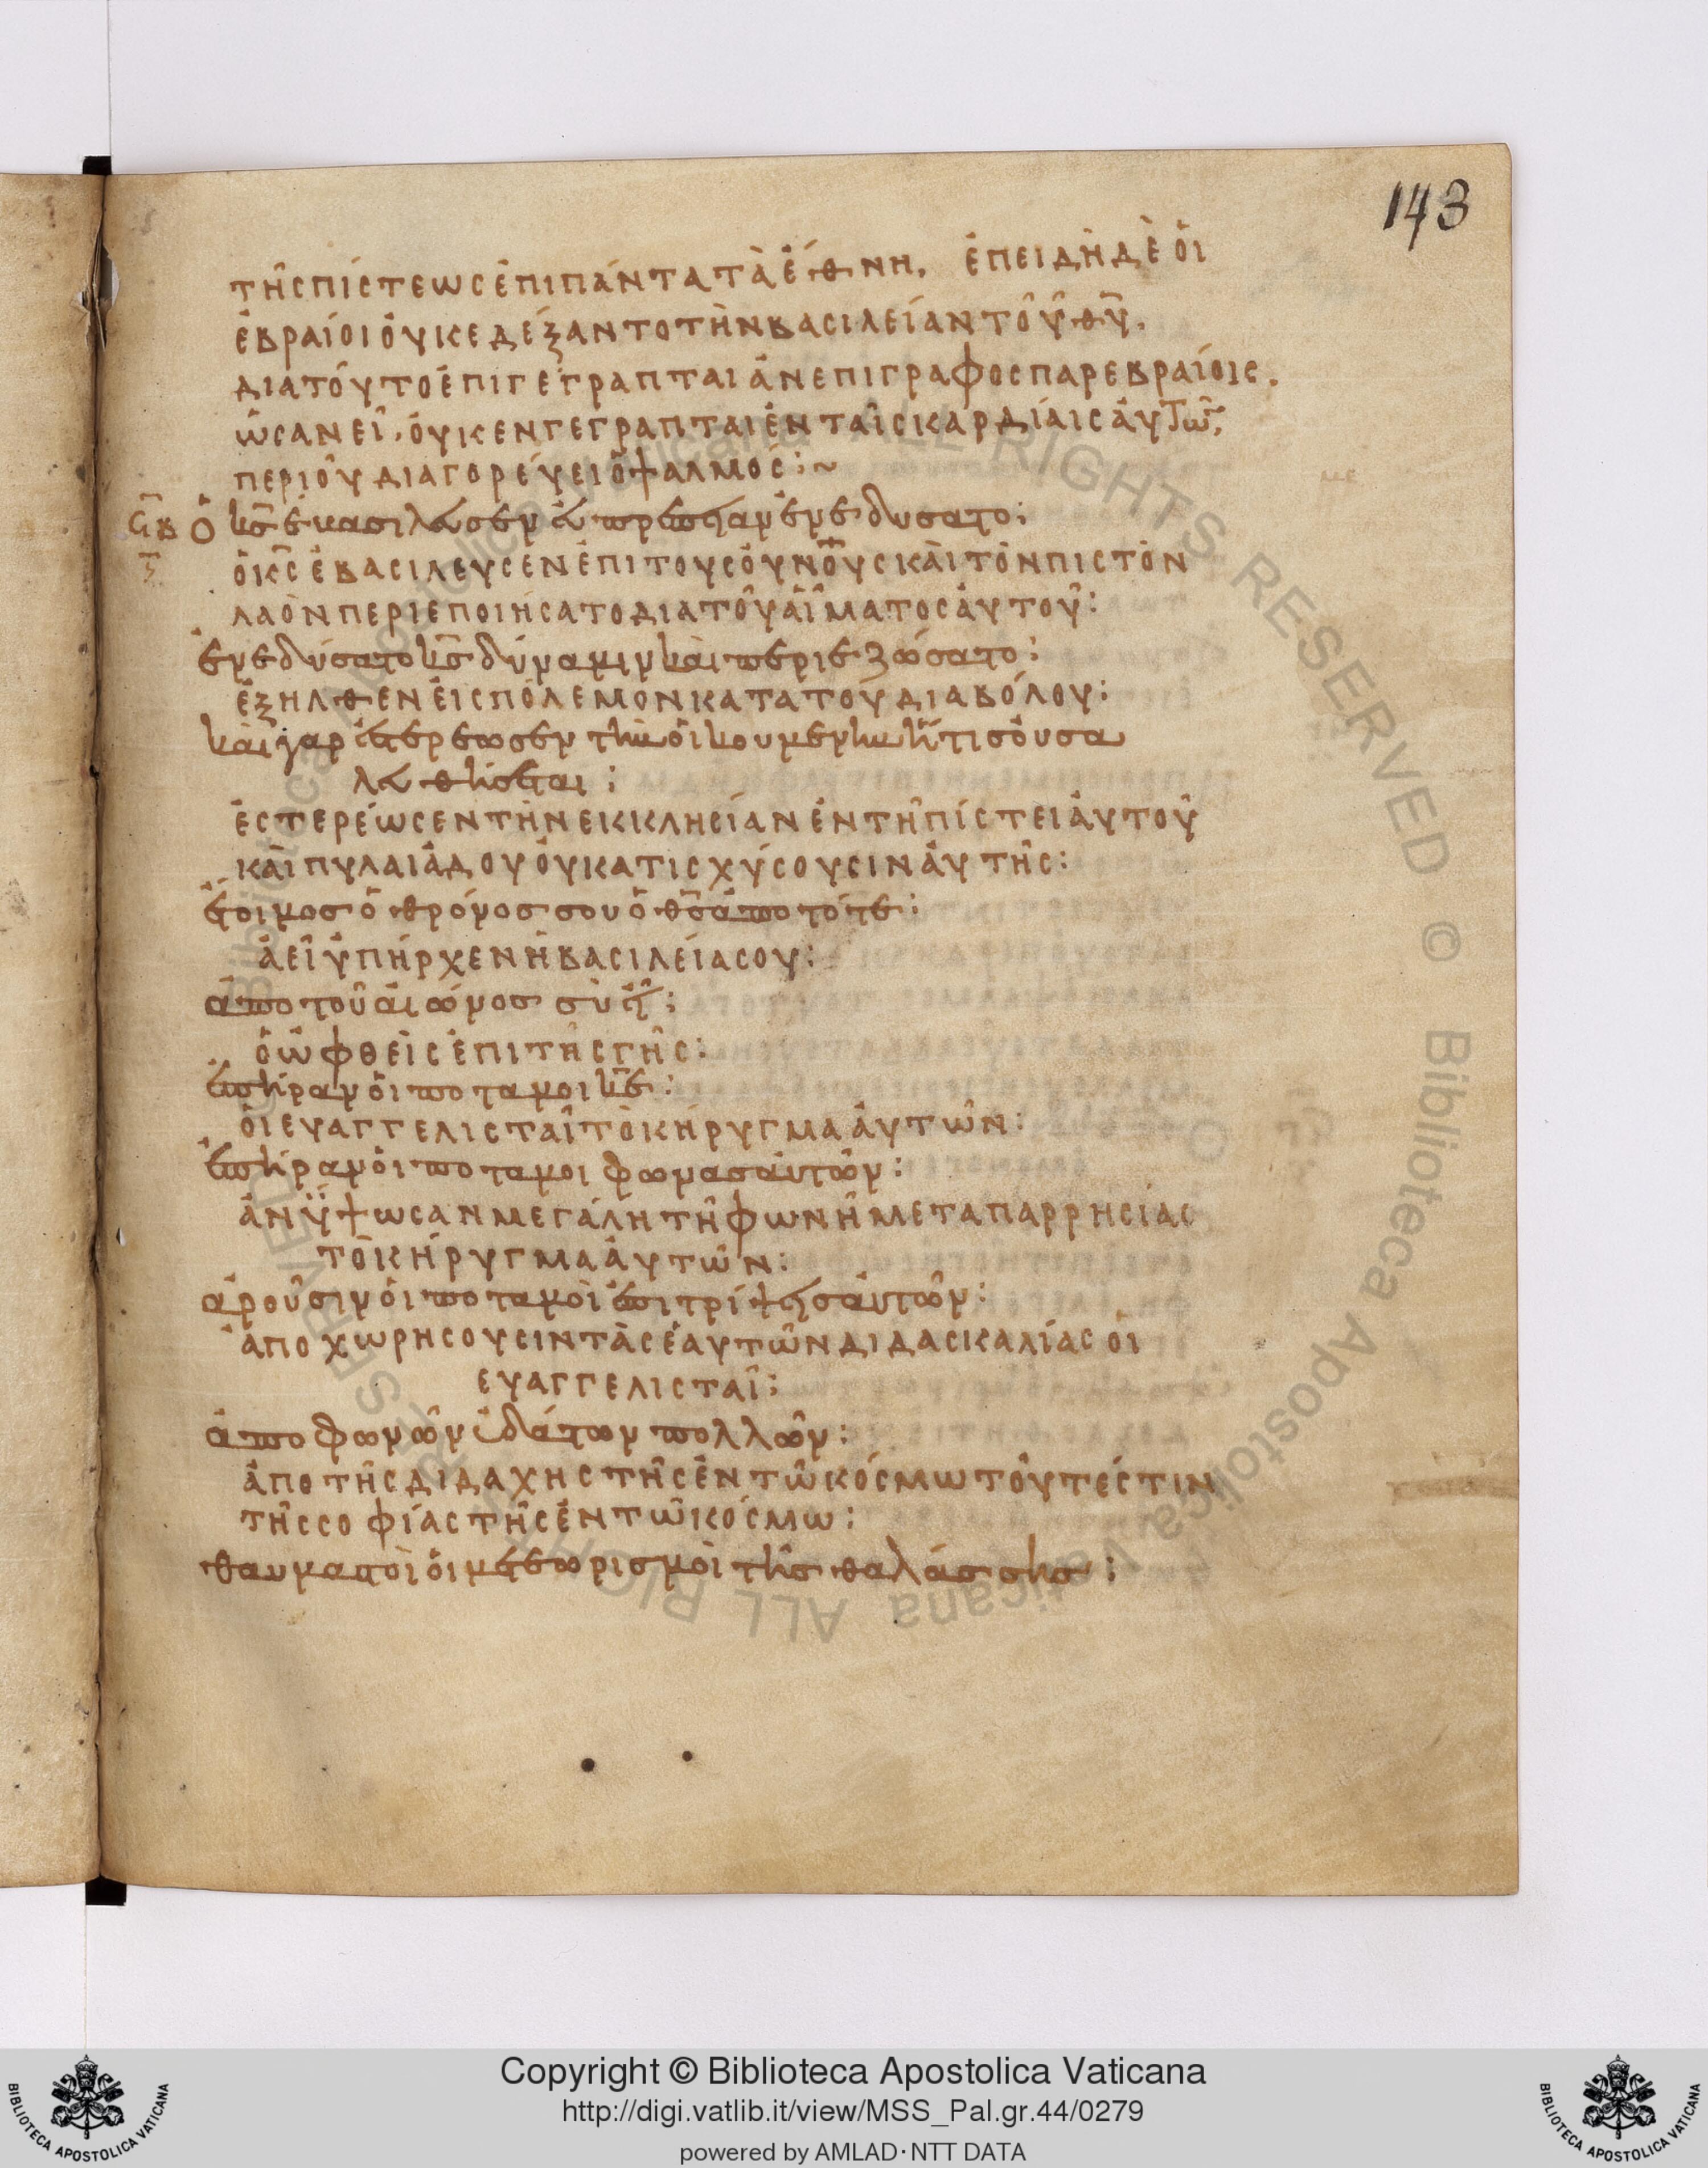 143
τῆς πίστεως ἐπι πάντα τὰ ἔθνη. ἐπειδὴ δὲ ὁι
ἑβραίοι ὀυκ εδέξαντο τὴν βασιλείαν τοῦ θυ̅.
δια τόυτο ἐπιγέγραπται ἀνεπιγραφος παρ εβραίοις.
ὡσανεὶ. ὀυκ ενγεγραπται ἐν ταῖς καρδίαις ἀυτῶν.
περι οὗ διαγορέυει ὁ ψαλμός :~
Ὁ κς̅ ἐβασιλευσεν ἐυπρέπειαν ἐνεδυσατο :
ὁ κς̅ ἐβασιλευσεν ἐπι τους ὀυνο̅υς κὰι τὸν πιστὸν
λαὸν περιεποιήσατο δια τοῦ ἁίματος ἀυτοῦ :
ἐνεδύσατο κς̅ δύναμιν κὰι περιεζώσατο :
ἐξηλθεν ἐις πόλεμον κατα τοῦ διαβόλου :
κὰι γαρ ἐστερέωσεν τὴν ὀικουμενην ἥτις ὀυ σα
λευθήσεται :
ἐστερέωσεν τὴν εκκλησίαν ἐν τῆ πίστει ἀυτοῦ
κὰι πυλαι ἅδου ὀυ κατισχύσουσιν ἀυτῆς :
ἕτοιμος ὁ θρόνος σου ὁ θς̅ ἀπο τότε :
ἀεὶ ὑπήρχεν ἡ βασιλεία σου :
ἀπο τοῦ ἀιώνος σὺ εἶ :
ὁ ὠφθεὶς ἐπι τῆς γῆς :
ἐπῆραν ὁι ποταμοι κε̅ :
ὁι ευαγγελισταὶ τὸ κήρυγμα ἀυτῶν :
ἐπῆραν ὁι ποταμοι φωνας ἀυτῶν :
ἀνύψωσαν μεγάλη τῆ φωνῆ μετα παρρησίας
τὸ κήρυγμα ἀυτῶν :
ἀροῦσιν ὁι ποταμὸι ἐπιτρίψεις ἀυτῶν :
ἀποχωρησουσιν τὰς ἑαυτῶν διδασκαλίας ὁι
ευαγγελισταὶ :
ἀπο φωνῶν ὑδάτων πολλῶν :
ἀπο τῆς διδαχης τῆς ἐν τῶ κόσμω τοῦτέστιν
τῆς σοφίας τῆς ἐν τῶ κόσμω :
θαυμαστὸι ὁι μετεωρισμὸι τῆς θαλάσσης :
Copyright © Biblioteca Apostolica Vaticana
http://digi.vatlib.it/view/MSS_Pal.gr.44/0279
powered by AMLAD·NTT DATA
BIBLIOTECA APOSTOLICA VATICANA
BIBLIOTECA APOSTOLICA VATICANA